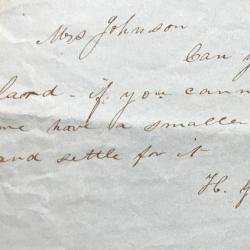 Mrs Johnson
Can y
lard - if you cann
me have a smaller
and settle for it
H. G